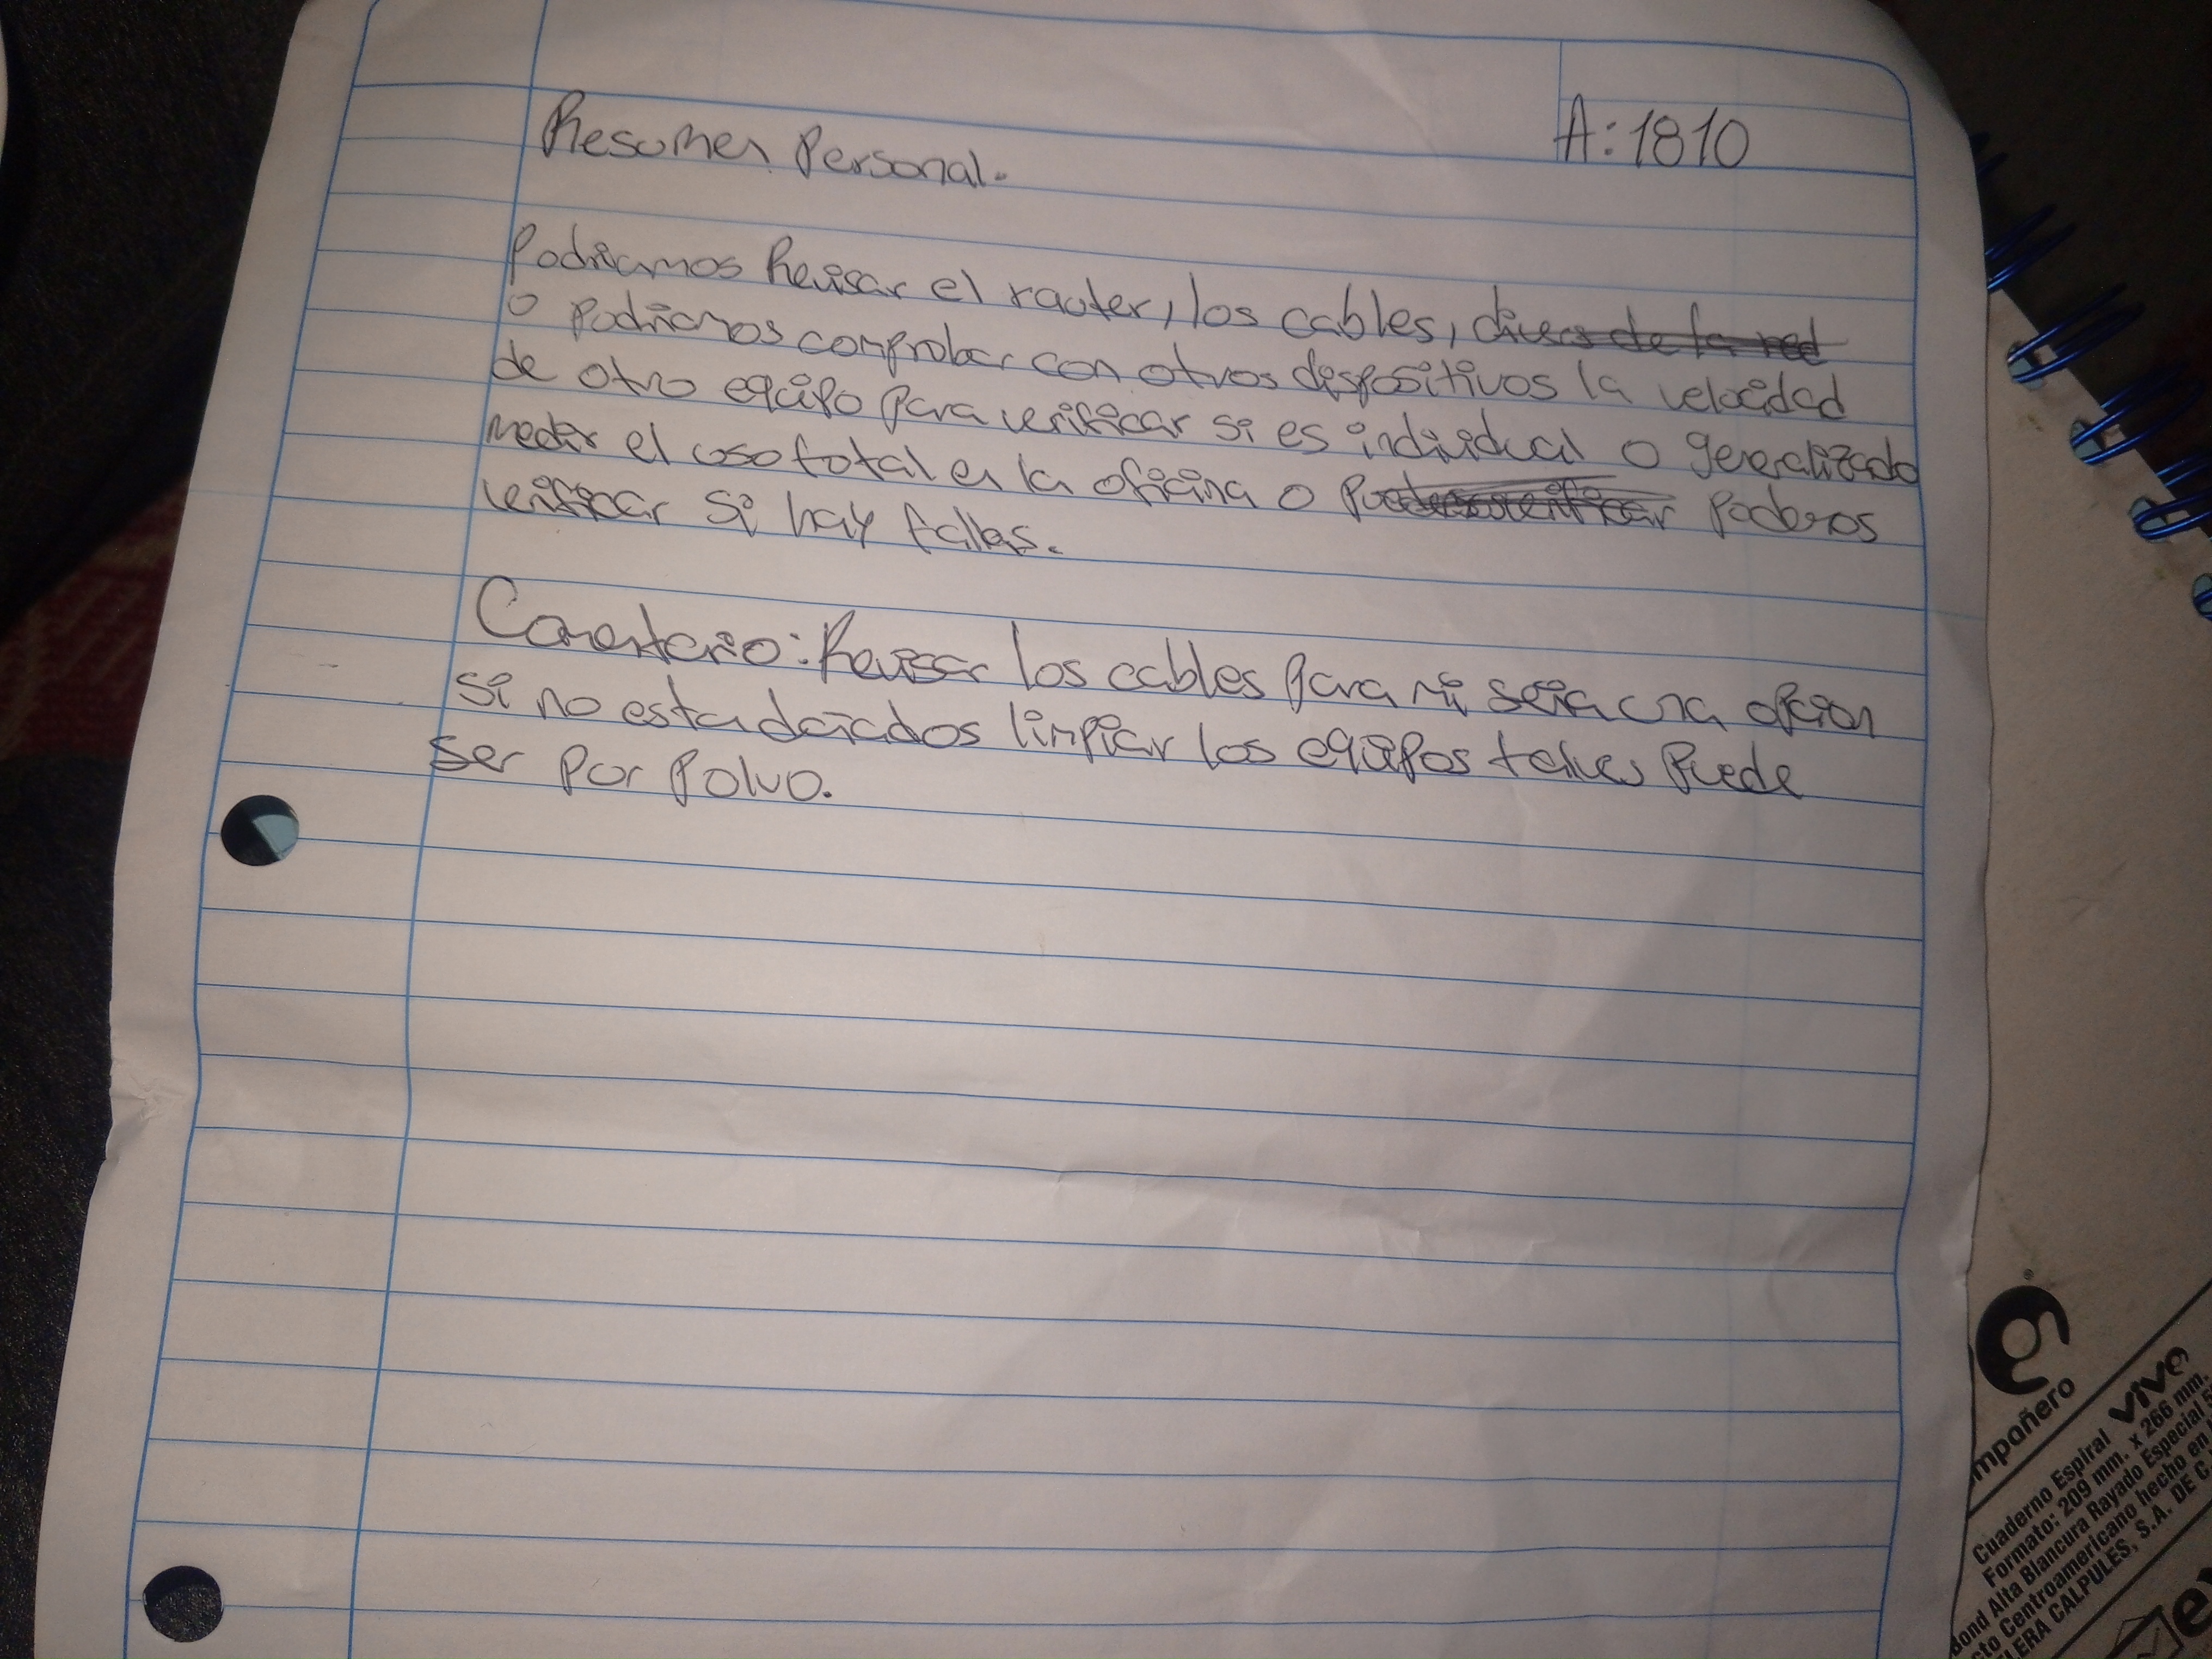 Resumen Personal.
A:1810
Podriamos Revisar el rauter, los cables,
o podriamos comprobar con otros dispositivos la velocidad
de otro equipo para verificar si es individual o generalizado
medir el uso total en la oficina o Podemos
verificar si hay fallas.
Comentario: Revisar los cables para mi seria una opcion
si no esta dañados limpiar los equipos talves Puede
ser por polvo.
mpañero
Cuaderno Espiral VIVE
Formato: 209 mm. x 266 mm.
Bond Alta Blancura Rayado Especial
cto Centroamericano hecho en
LERA CALPULES, S.A. DE C.